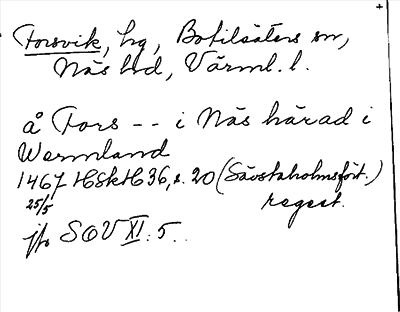 Forsvik, hg, Botilsäters sn,
Näs hd, Värml. l.
å Fors -- i Näs härad i
Wermland
1467 HSkH 36, s. 20 (Sävstaholmsfört.)
25/5 regest.
jfr SOV XI: 5.